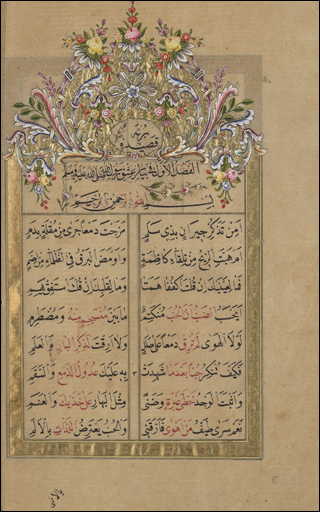 قصيده
بريه
الفصل الاول في ذكر عشق رسول الله صلى الله عليه وسلم
بسم الله الرحمن الرحيم
امن تذكر جيران بذي سلم مزجت دمعا جرى من مقلة بدم
ام هبت الريح من تلقاء كاظمة واومض البرق في الظلماء من اضم
فما لعينيك ان قلت اكففا همتا وما لقلبك ان قلت استفق يهم
ايحسب الصب ان الحب منكتم ما بين منسجم منه ومضطرم
لولا الهوى لم ترق دمعا على طلل ولا ارقت لذكر البان والعلم
فكيف تنكر حبا بعد ما شهدت به عليك عدول الدمع والسقم
واثبت الوجد خطي عبرة وضنى مثل البهار على خديك والعنم
نعم سرى طيف من اهوى فارقني والحب يعترض اللذات بالالم
يالائمي